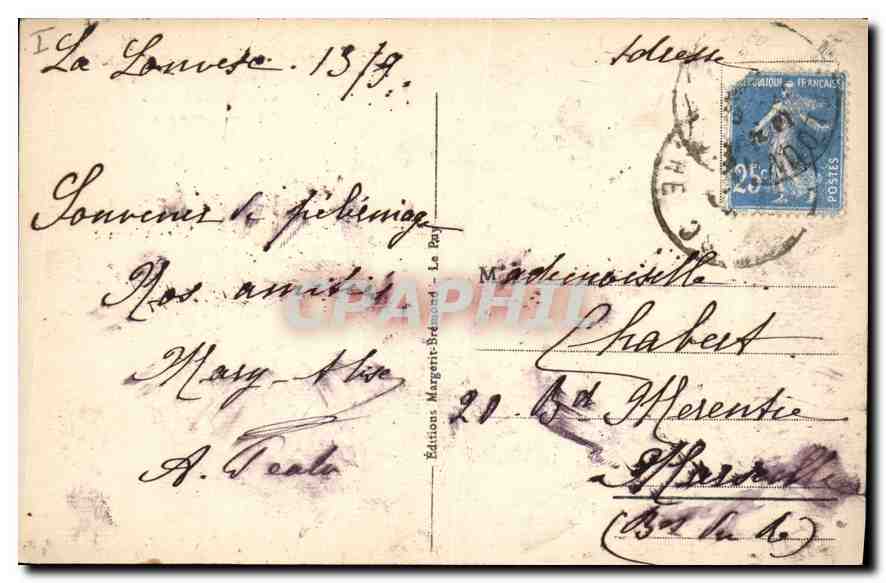 I
La Louvesc. 13/9.
Souvenir de pélérinage
Nos amitiés.
Mary-Alise
A.
Éditions Margerit-Brémond - Le Puy
Adresse
RÉPUBLIQUE FRANÇAISE
25c
POSTES
CPAPHIL
Mademoiselle
Chabert
20. Bd Merentie
Marseille
(Bs du R)